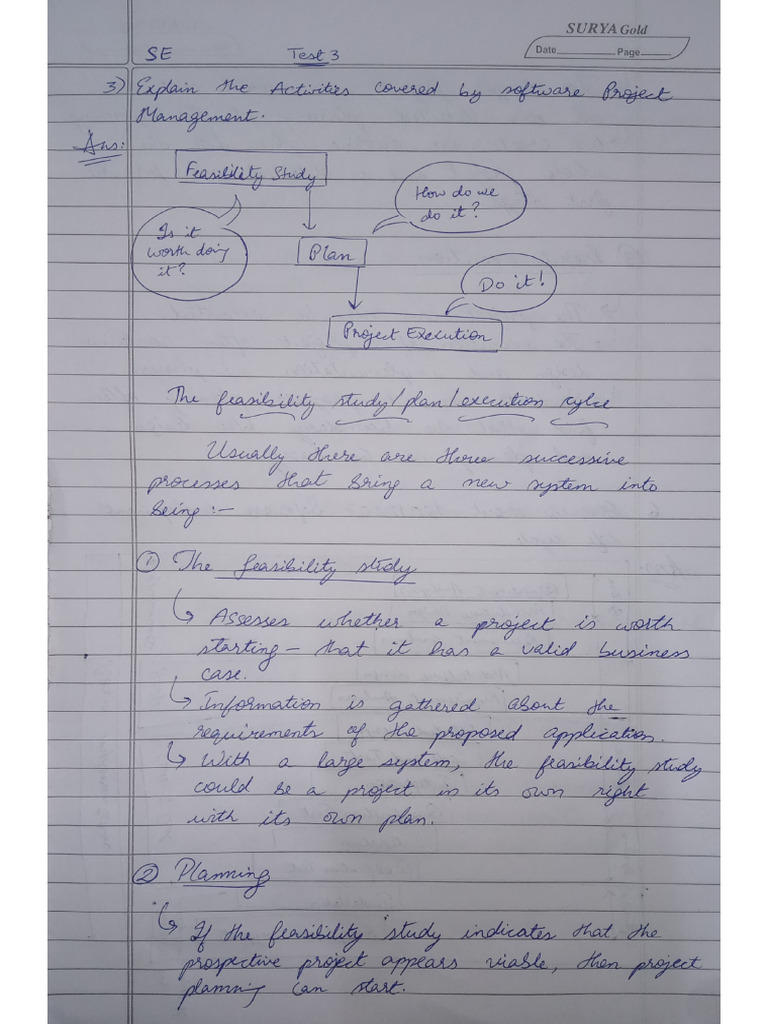 SURYA Gold
Date Page
SE Test 3
3) Explain the Activities covered by software Project
Management.
Ans:
Feasibility Study
How do we
do it?
Is it
worth doing
it?
Plan
Do it!
Project Execution
The feasibility study/plan/execution cylce
Usually there are three successive
processes that bring a new system into
being :-
① The feasibility study
↳ Assesses whether a project is worth
starting - that it has a valid business
case.
↳ Information is gathered about the
requirements of the proposed application.
↳ With a large system, the feasibility study
could be a project in its own right
with its own plan.
② Planning
↳ If the feasibility study indicates that the
prospective project appears viable, then project
planning can start.